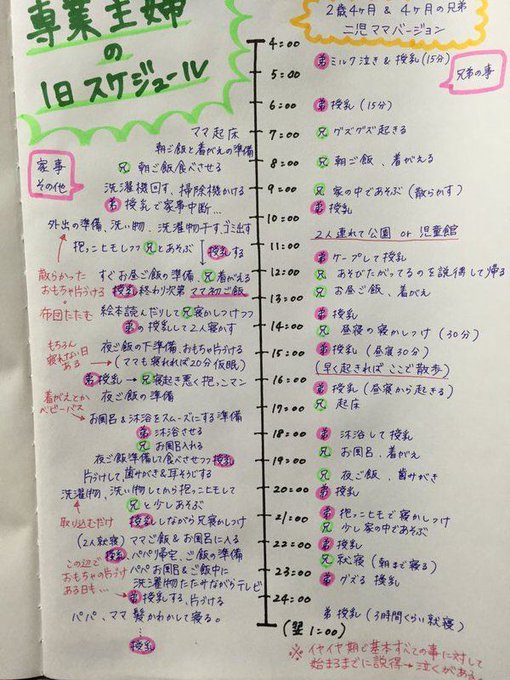 専業主婦
の
1日スケジュール
2歳4ヶ月 & 4ヶ月の兄弟
二児ママバージョン
家事
その他
兄弟の事
4:00
5:00
6:00
7:00
8:00
9:00
10:00
11:00
12:00
13:00
14:00
15:00
16:00
17:00
18:00
19:00
20:00
21:00
22:00
23:00
24:00
(翌1:00)
ママ起床
朝ご飯と着がえの準備
兄 朝ご飯食べさせる
洗濯機回す、掃除機かける
弟 授乳で家事中断…
外出の準備、洗い物、洗濯物干す、ゴミ出す
抱っこヒモしつつ兄とあそぶ 授乳する
散らかった
おもちゃ片づける
すぐお昼ご飯の準備、兄着がえる
授乳終わり次第 ママ初ご飯
布団たたむ
絵本読んだりして兄寝かしつけつつ
弟の授乳して2人寝かす
もちろん
寝れない日
ある
夜ご飯の下準備、おもちゃ片づける
(ママも寝れれば20分仮眠)
弟授乳→兄寝起き悪く抱っこマン
着がえとか
ベビーバス
夜ご飯の準備
お風呂&沐浴をスムーズにする準備
弟 沐浴させる
兄 お風呂入れる
夜ご飯準備して食べさせつつ授乳
片づけして、歯みがき&耳そうじする
洗濯物、洗い物してから抱っこヒモして
兄と少しあそぶ
取り込むだけ
授乳しながら兄寝かしつけ
(2人就寝)ママご飯&お風呂に入る
授乳、パパ帰宅、ご飯の準備
この辺で
おもちゃの片づけ
ある日も…
パパお風呂&ご飯中に
洗濯物たたみながらテレビ
弟授乳する、片づける
パパ、ママ 髪かわかして寝る。
授乳
弟 ミルク泣き & 授乳(15分)
弟 授乳(15分)
兄 グズグズ起きる
兄 朝ご飯、着がえる
兄 家の中であそぶ(散らかす)
弟 授乳
2人連れて公園 or 児童館
弟 ケープして授乳
兄 あそびたがってるのを説得して帰る
兄 お昼ご飯、着がえ
弟 授乳
兄 昼寝の寝かしつけ(30分)
弟 授乳(昼寝30分)
(早く起きればここで散歩)
弟 授乳(昼寝から起きる)
兄 起床
弟 沐浴して授乳
兄 お風呂、着がえ
兄 夜ご飯、歯みがき
弟 授乳
弟 抱っこヒモで寝かしつけ
兄 少し家の中であそぶ
弟 授乳
兄 就寝(朝まで寝る)
弟 グズる 授乳
弟 授乳(3時間くらい就寝)
※イヤイヤ期で基本すべての事に対して
始まるまでに説得→泣くがある。